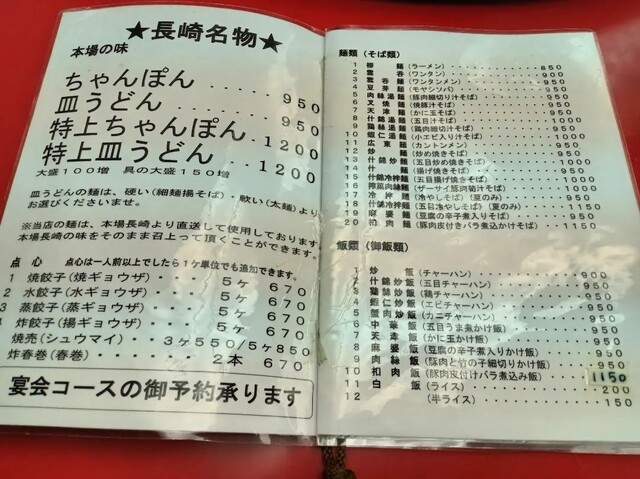 ★長崎名物★
本場の味
ちゃんぽん ........ 950
皿うどん ........ 950
特上ちゃんぽん 1200
特上皿うどん .... 1200
大盛100増 具の大盛150増
皿うどんの麺は、硬い(細麺揚そば)・軟い(太麺)より
お選びくださいませ。
※当店の麺は、本場長崎より直送して使用しております
本場長崎の味をそのまま召上って頂くことができます。
点心 点心は一人前以上でしたら1ケ単位でも追加できます。
1 焼餃子(焼ギョウザ)・・・ 5ヶ 670
2 水餃子(水ギョウザ)・・・ 5ヶ 670
3 蒸餃子(蒸ギョウザ)・・・ 5ヶ 670
4 炸餃子(揚ギョウザ)・・・ 5ヶ 670
焼売(シュウマイ)・・・ 3ヶ550/5ヶ850
炸春巻(春巻)・・・ 2本 670
宴会コースの御予約承ります
麺類(そば類)
1 柳麺(ラーメン) 850
2 雲呑(ワンタン) 900
3 雲呑麺(ワンタンメン)
4 豆芽麺(モヤシソバ)
5 肉絲湯麺(豚肉細切り汁そば)
6 叉焼麺(焼豚汁そば)
7 天津麺(かに玉そば)
8 什錦湯麺(五目汁そば)
9 鶏絲湯麺(鶏肉細切汁そば)
10 蝦仁湯麺(小エビ入り汁そば)
11 広東麺(カントンメン)
12 炒麺(炒め焼きそば)
13 什錦炒麺(五目炒め焼きそば)
14 炸麺(揚げ焼きそば)
15 什錦炸麺(五目揚げ焼きそば)
16 搾菜肉絲麺(ザーサイ豚肉細汁そば)
17 冷拌麺(冷やしそば)(夏のみ)
18 什錦冷拌麺(五目冷やしそば)(夏のみ) 1150
19 麻婆麺(豆腐の辛子煮入りそば) 950
20 扣肉麺(豚肉皮付きバラ煮込みそば) 1150
飯類(御飯類)
1 炒飯(チャーハン) 900
2 什錦炒飯(五目チャーハン) 950
3 鶏絲炒飯(鶏チャーハン) 950
4 蝦仁炒飯(エビチャーハン) 950
5 什錦炒飯(カニチャーハン) 950
6 中華飯(五目うま煮かけ飯) 950
7 天津飯(かに玉かけ飯) 950
8 麻婆飯(豆腐の辛子煮入りかけ飯) 950
9 肉絲飯(豚肉と竹の子細切りかけ飯) 950
10 扣肉飯(豚肉皮付けバラ煮込み飯) 1150
11 白飯(ライス) 200
12 (半ライス) 150